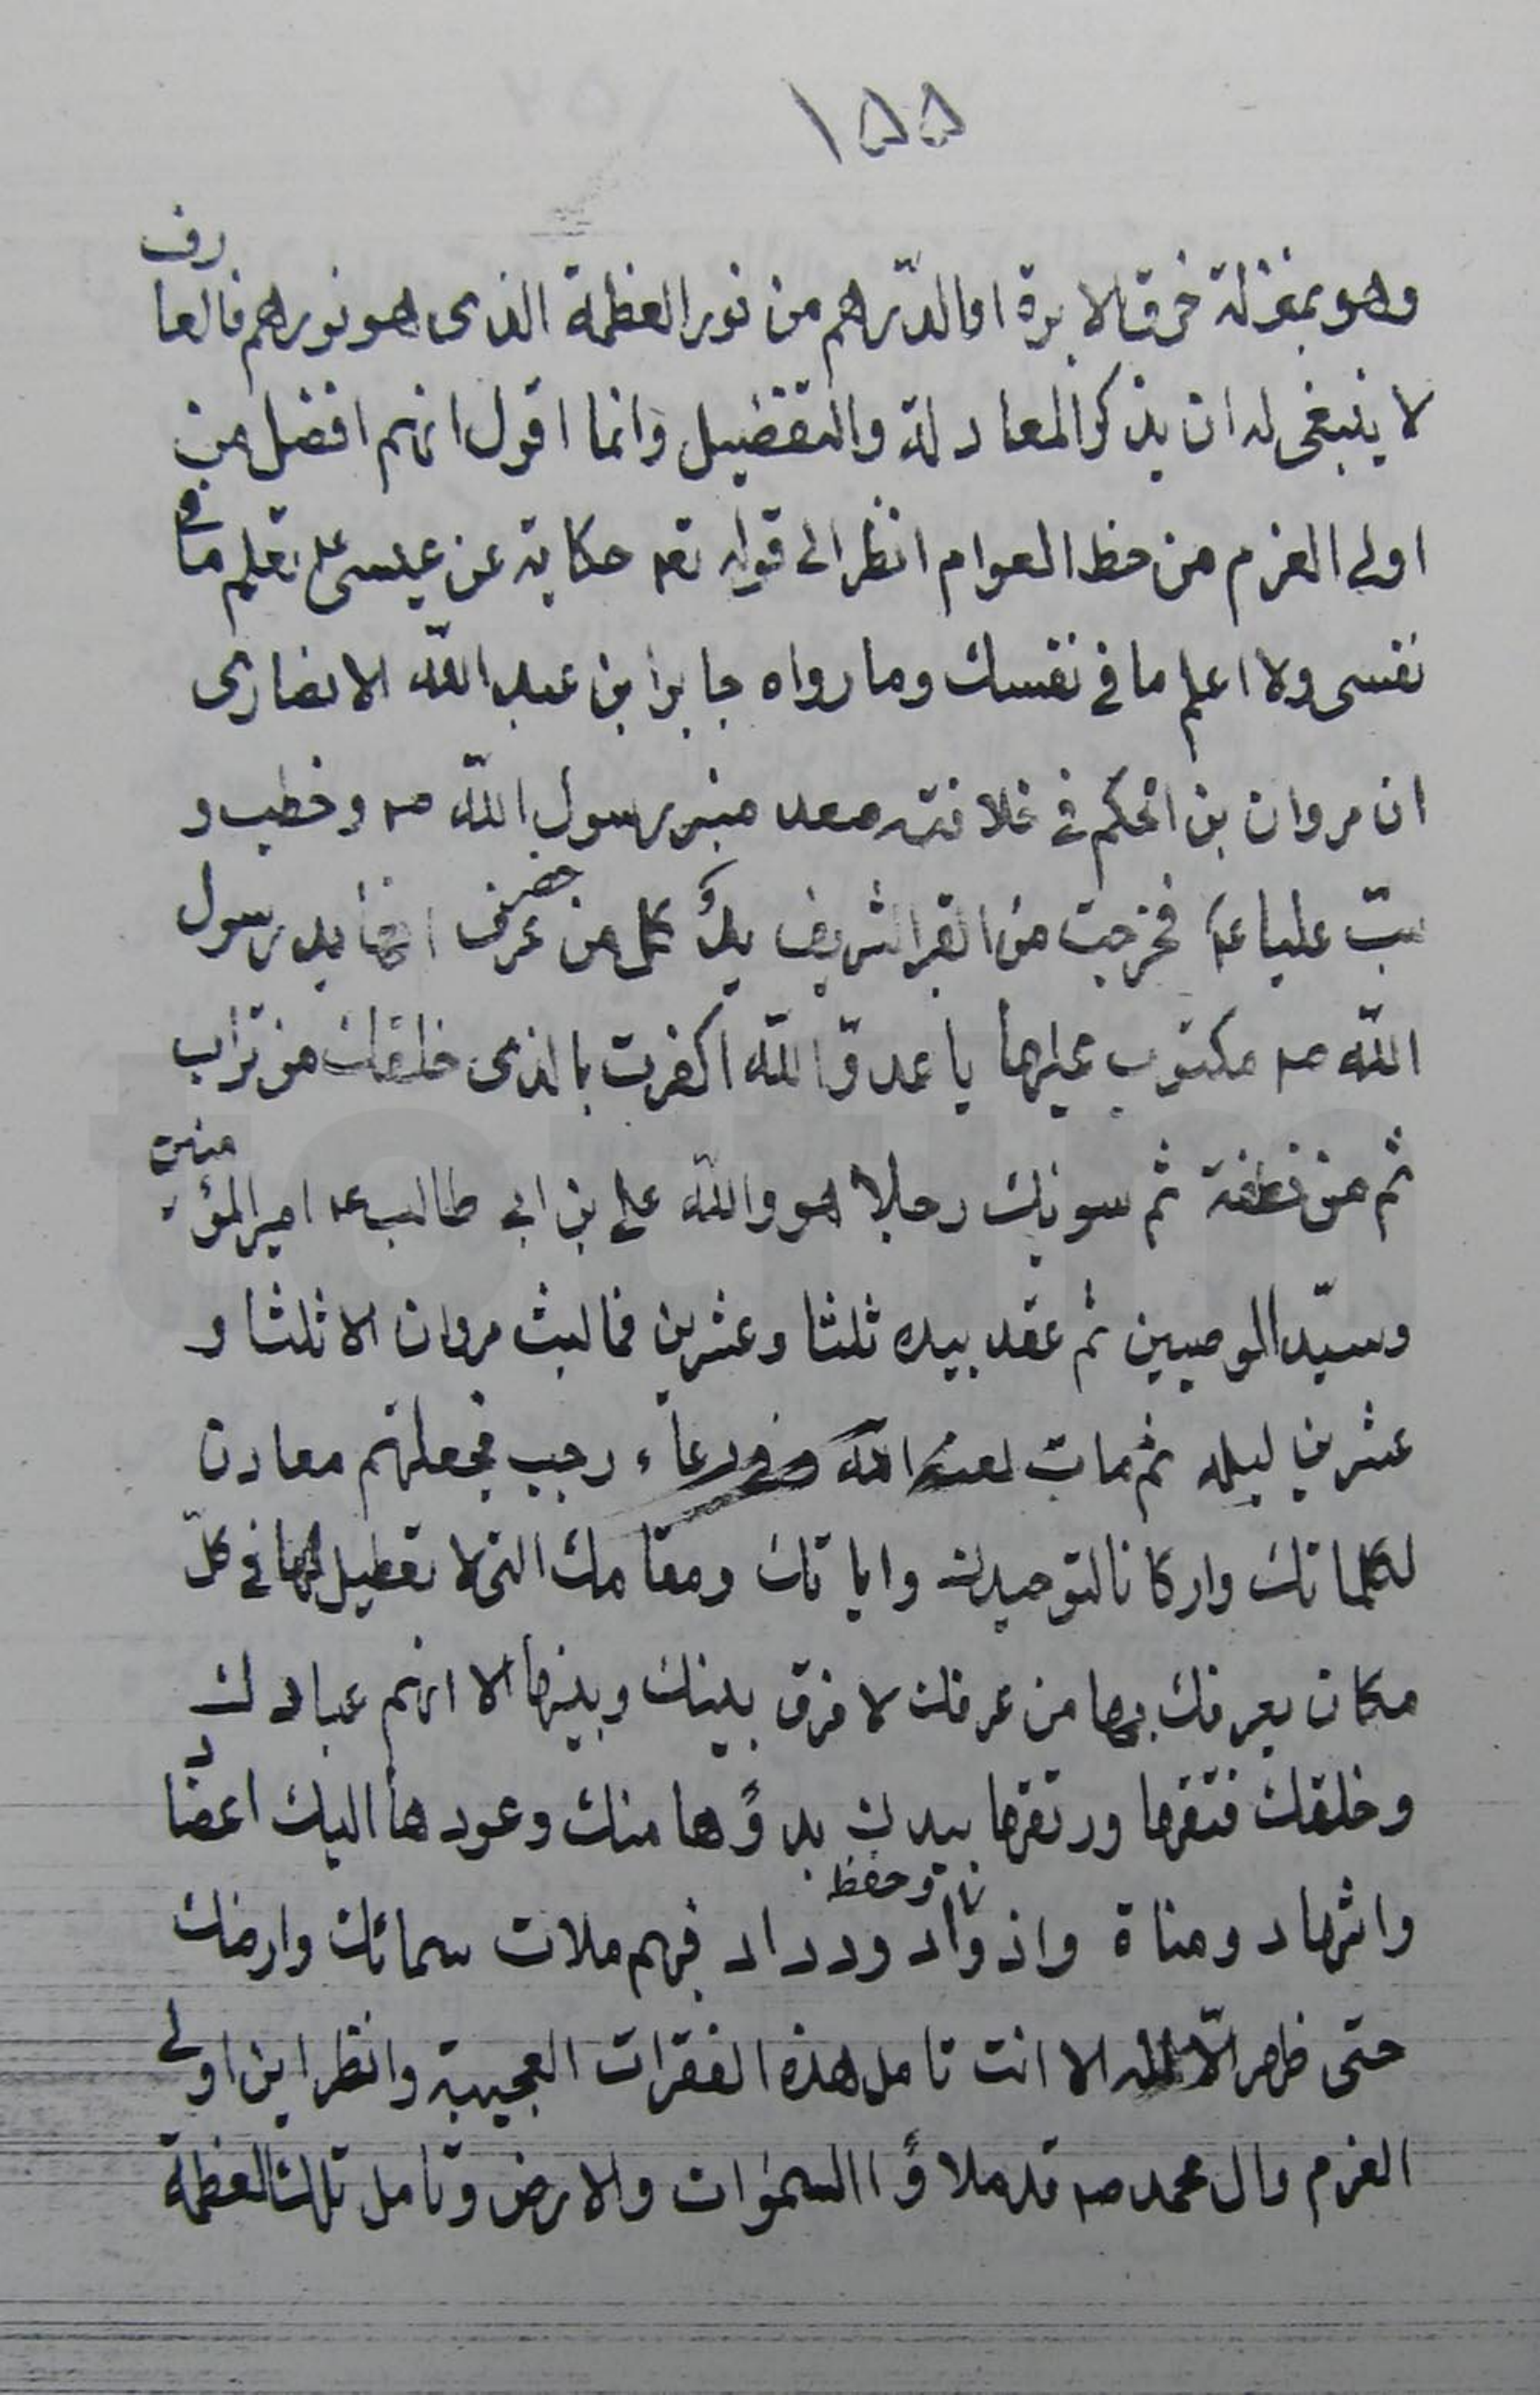 ١٥٥
وهو بمنزلة خرق الابرة او الدّراهم من نور العظمة الذى هو نورهم فالعارف
لا ينبغى له ان يذكر المعادلة والتفضيل وانما اقول انهم افضل من
اولى العزم من حظ العوام انظر الى قوله تعه حكاية عن عيسى ع تعلم ما فى
نفسى ولا اعلم ما فى نفسك وما رواه جابر ابن عبد الله الانصارى
ان مروان بن الحكم فى خلافته صعد منبر رسول الله صه وخطب و
سبّ علياً عه فخرجت من القبر الشريف يدٌ كل من حضر عرف انها يد رسول
الله صه مكتوب عليها يا عدوّ الله اكفرت بالذى خلقك من تراب
ثم من نطفة ثم سويك رجلا هو والله على بن ابى طالب عه امير المؤمنين
وسيّد الوصيين ثم عقد بيده ثلثا وعشرين فما لبث مروان الا ثلثا و
عشرين ليله ثم مات لعنه الله وفى دعاء رجب فجعلتهم معادن
لكلماتك واركانا لتوحيدك واياتك ومقامك التى لا تعطيل لها فى كلّ
مكان يعرفك بها من عرفك لا فرق بينك وبينها الا انهم عبادك
وخلقك فتقها ورتقها بيدك بدؤها منك وعودها اليك اعضاد
واشهاد ومناة واذواد وحفظة ورداد فبهم ملات سمائك وارضك
حتى ظهر الّا اله الا انت تامل هذه الفقرات العجيبة وانظر اين اولى
العزم وال محمد صه قد ملاؤا السموات والارض وتامل تلك العظمة